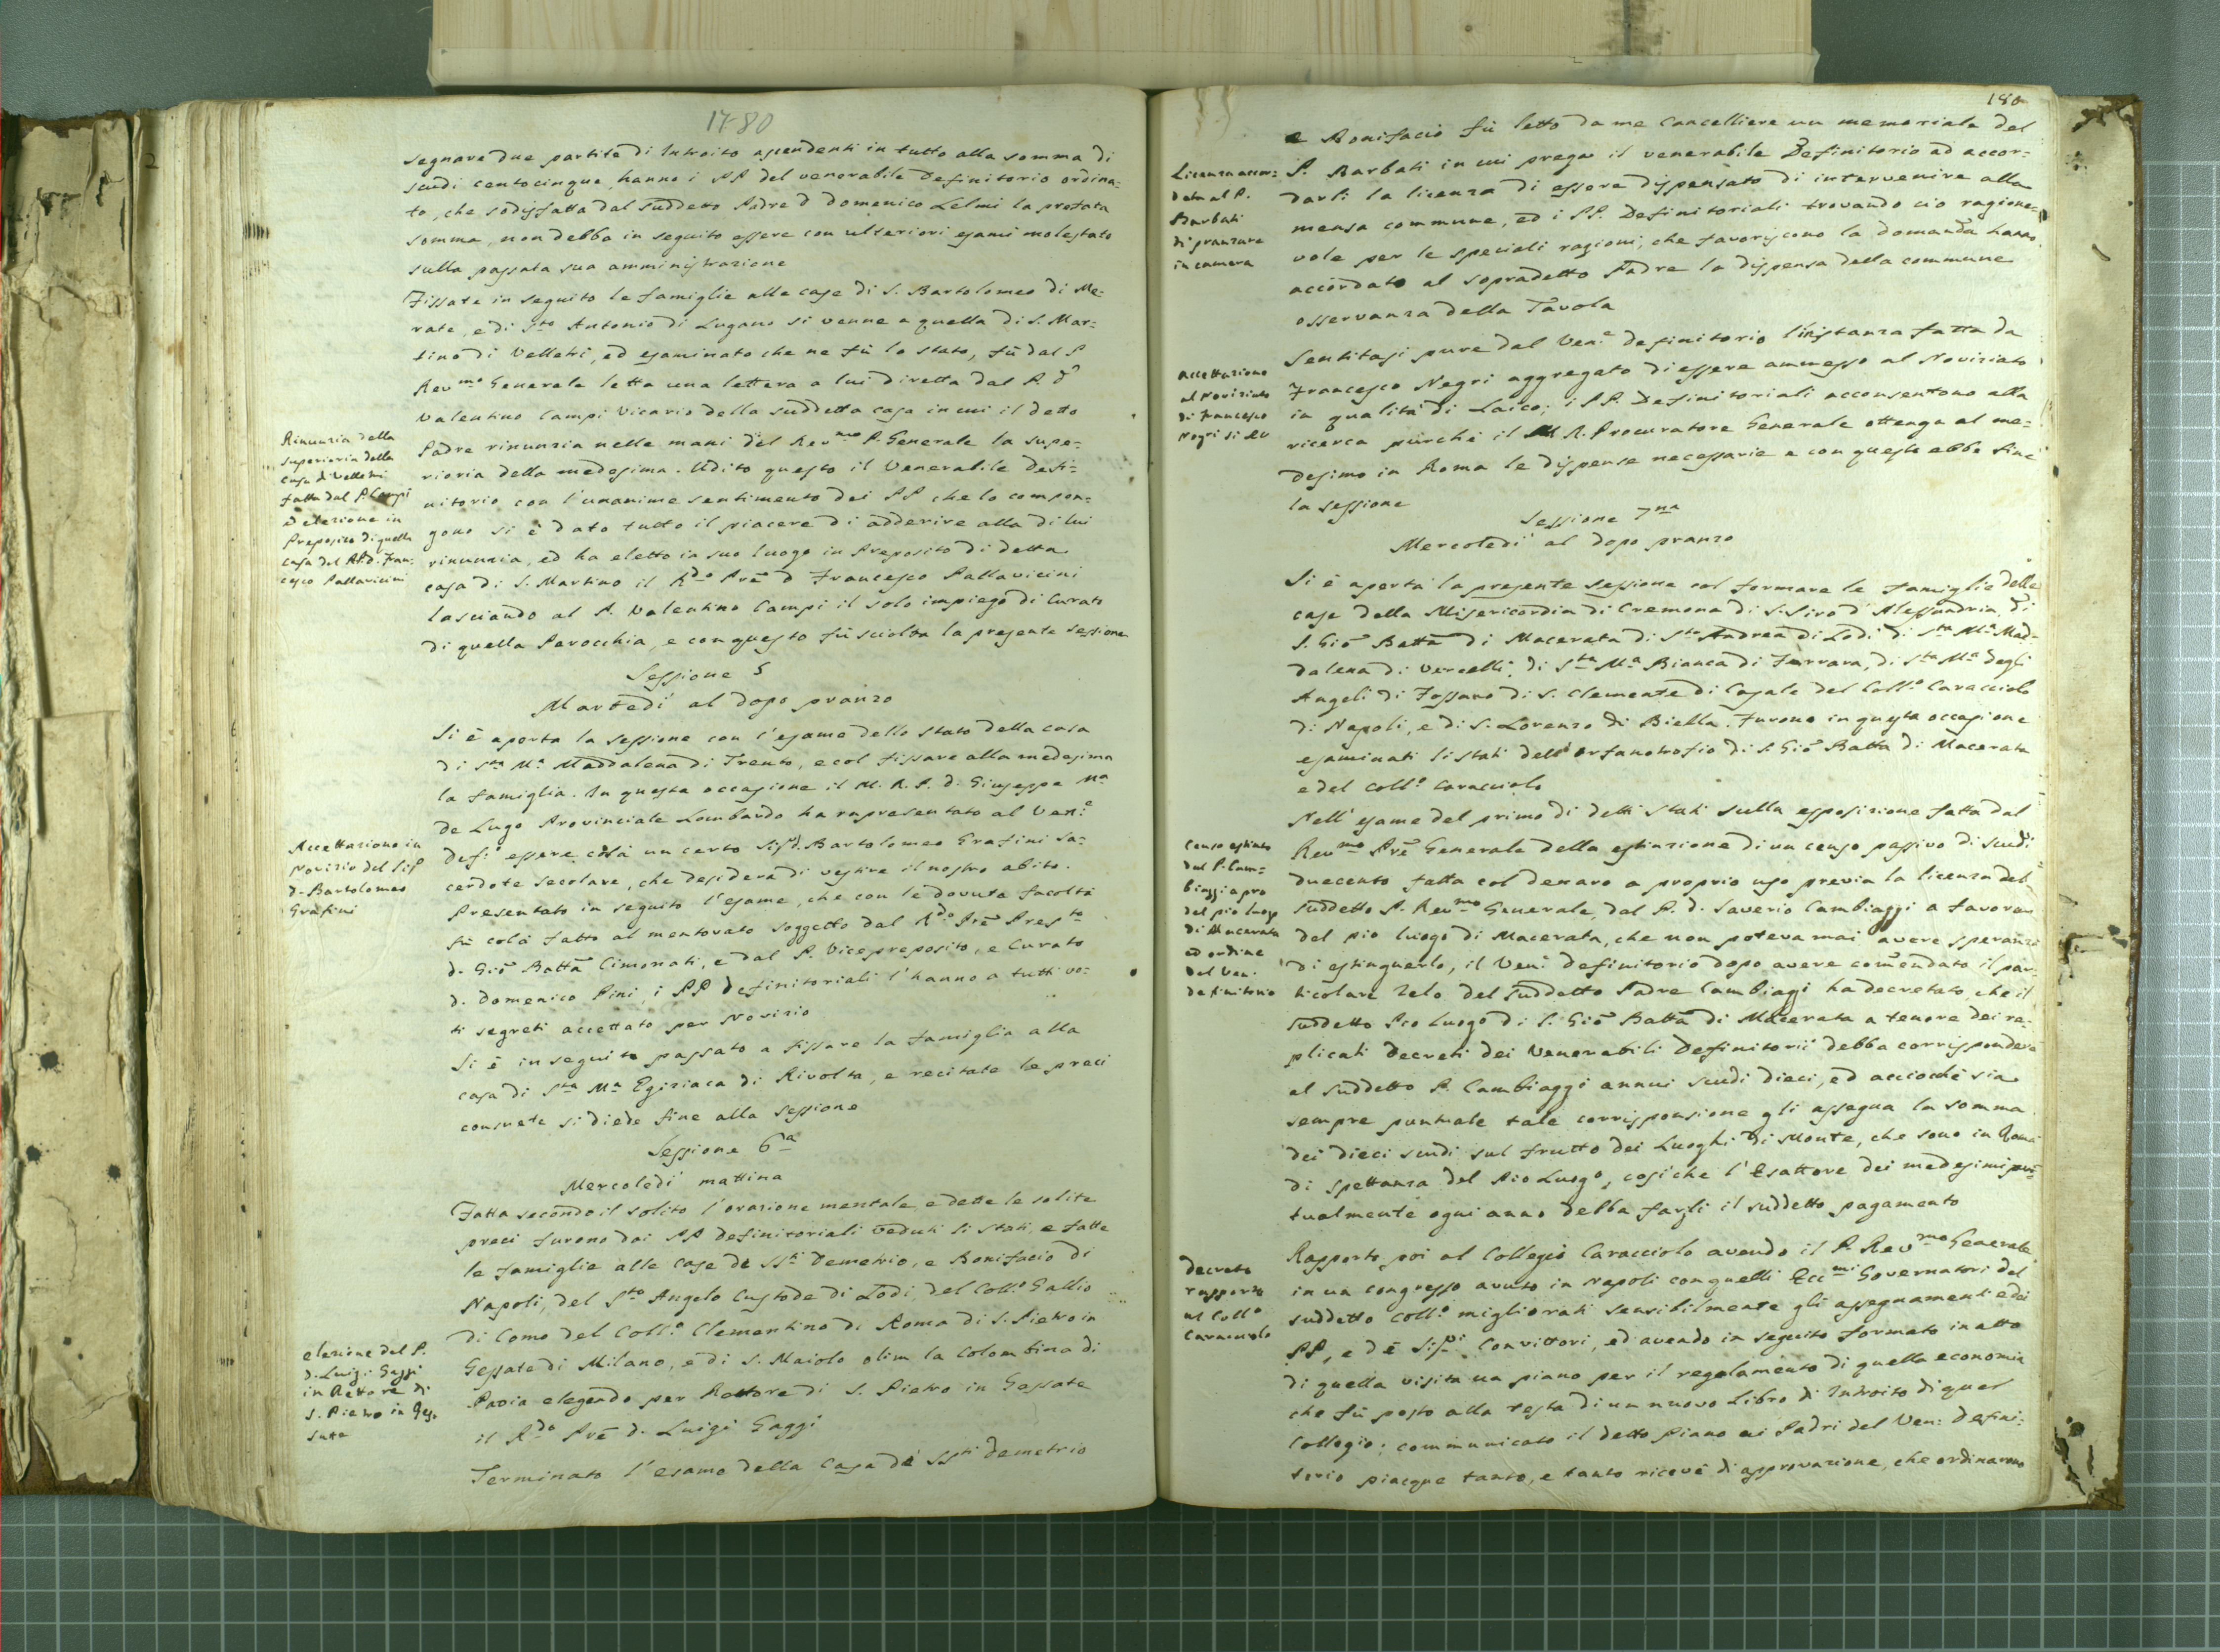 1780
segnare due partite di Introito ascendenti in tutto alla somma di
scudi centocinque, hanno i PP del venerabile Definitorio ordina=
to, che sodisfatta dal suddetto Padre D Domenico Lelmi la prefata
somma, non debba in seguito essere con ulteriori esami molestato
sulla passata sua amministrazione
Fissate in seguito le famiglie alle case di S. Bartolomeo di Me=
rate, e di Sto Antonio di Lugano si venne a quella di S. Mar=
tino di Velletri, ed esaminato che ne fù lo stato, fù dal P
Revmo Generale letta una lettera a lui diretta dal P. d
Valentino Campi Vicario della suddetta casa in cui il detto
Padre rinunzia nelle mani del Revmo P. Generale la supe=
rioria della medesima. Udito questo il Venerabile Defi=
nitorio con l'unanime sentimento dei PP che lo compon=
gono si è dato tutto il piacere di adderire alla di lui
rinunzia, ed ha eletto in suo luogo in Preposito di detta
casa di S. Martino il Rdo Prē D Francesco Pallavicini
lasciando al P. Valentino Campi il solo impiego di Curato
di quella Parocchia, e con questo fù sciolta la presente sessione
Rinunzia della
superioria della
casa di Velletri
fatta dal P. Campi
ed elezione in
Preposito di quella
casa del P.D. Fran=
cesco Pallavicini
Sessione 5
Martedì al dopo pranzo
Si è aperta la sessione con l'esame dello stato della casa
di Sta Ma Maddalena di Trento, e col fissare alla medesima
la famiglia. In questa occasione il M. R. P. d. Giuseppe Ma
de Lugo Provinciale Lombardo ha rapresentato al Vene
Defio essere colà un certo Sigr D. Bartolomeo Grafini sa=
cerdote secolare, che desidera di vestire il nostro abito.
Presentato in seguito l'esame, che con le dovute facoltà
fù colà fatto al mentovato soggetto dal Rdo Prē Presto
d. Giō Battā Cimonati, e dal P. Vicepreposito, e Curato
d. Domenico Pini, i PP Definitoriali l'hanno a tutti vo=
ti segreti accettato per Novizio
Accettazione in
Novizio del Sigr
D. Bartolomeo
Grafini
Si è in seguito passato a fissare la famiglia alla
casa di Sta Ma Egiziaca di Rivolta, e recitate le preci
consuete si diede fine alla sessione
Sessione 6a
Mercoledì mattina
Fatta secondo il solito l'orazione mentale, e dette le solite
preci furono dai PP Definitoriali veduti li stati, e fatte
le famiglie alle case de SSti Demetrio, e Bonifacio di
Napoli, del Sto Angelo Custode di Lodi, del Collo Gallio
di Como del Collo Clementino di Roma di S. Pietro in
Gessate di Milano, e di S. Maiolo olim la Colombina di
Pavia elegendo per Rettore di S. Pietro in Gessate
il Rdo Prē d. Luigi Gaggi
elezione del P.
D. Luigi Gaggi
in Rettore di
S. Pietro in Ges=
sate
Terminato l'esame della Casa de SSti Demetrio
180
e Bonifacio fù letto da me Cancelliere un memoriale del
P. Barbati in cui prega il venerabile Definitorio ad accor=
darli la licenza di essere dispensato di intervenire alla
mensa commune, ed i PP. Definitoriali trovando ciò ragione=
vole per le speciali ragioni, che favoriscono la domanda hanno
accordato al sopradetto Padre la dispensa della commune
osservanza della Tavola
Licenza accor=
data al P.
Barbati
di pranzare
in camera
Sentitasi pure dal Vene definitorio l'instanza fatta da
Francesco Negri aggregato di essere ammesso al Noviziato
in qualità di Laico; i PP. Definitoriali acconsentono alla
ricerca purchè il M R. Procuratore Generale ottenga al me=
desimo in Roma le dispense necessarie e con questo ebbe fine
la sessione
accettazione
al Noviziato
di Francesco
Negri
Sessione 7na
Mercoledì al dopo pranzo
Si è aperta la presente sessione col formare le famiglie delle
case della Misericordia di Cremona di S. Siro d'Alessandria, di
S. Giō Battā di Macerata di Sto Andrea di Lodi di Sta Ma Mad=
dalena di Vercelli, di Sta Ma Bianca di Ferrara, di Sta Ma degli
Angeli di Fossano di S. Clemente di Casale del Collo Caracciolo
di Napoli, e di S. Lorenzo di Biella. Furono in questa occasione
esaminati li stati dell'orfanotrofio di S. Giō Battā di Macerata
e del Collo Caracciolo
Nell'esame del primo di detti stati sulla esposizione fatta dal
Revmo Prē Generale della estinzione di un censo passivo di scudi
duecento fatta col denaro a proprio uso previa la licenza del
suddetto P. Revmo Generale, dal P. d. Saverio Cambiaggi a favore
del pio luogo di Macerata, che non poteva mai avere speranza
di estinguerlo, il Vene definitorio dopo avere com̄endato il par=
ticolare zelo del suddetto Padre Cambiagi ha decretato, che il
suddetto Pio Luogo di S. Giō Battā di Macerata a tenore dei re=
plicati decreti dei Venerabili Definitorii debba corrispondere
al suddetto P. Cambiaggi annui scudi dieci, ed acciochè sia
sempre puntuale tale corrisponsione gli assegna la somma
dei dieci scudi sul frutto dei Luoghi di Monte, che sono in Roma
di spettanza del Pio Luogo, cosichè l'Esattore dei medesimi pun=
tualmente ogni anno debba fargli il suddetto pagamento
Censo estinto
dal P. Cam=
biaggi a pro
del pio luogo
di Macerata
ed ordine
del Ven.
definitorio
Rapporto poi al Collegio Caracciolo avendo il P. Revmo Generale
in un congresso avuto in Napoli con quelli Eccmi Governatori del
suddetto Collo migliorati sensibilmente gli assegnamenti e dei
PP, e dē Sigri Convittori, ed avendo in seguito formato in atto
di quella visita un piano per il regolamento di quella economia
che fù posto alla testa di un nuovo Libro di Introito di quel
Collegio; communicato il detto Piano ai Padri del Ven: Defini=
torio piacque tanto, e tanto ricevè di approvazione, che ordinarono
decreto
rapporto
al Collo
Caracciolo